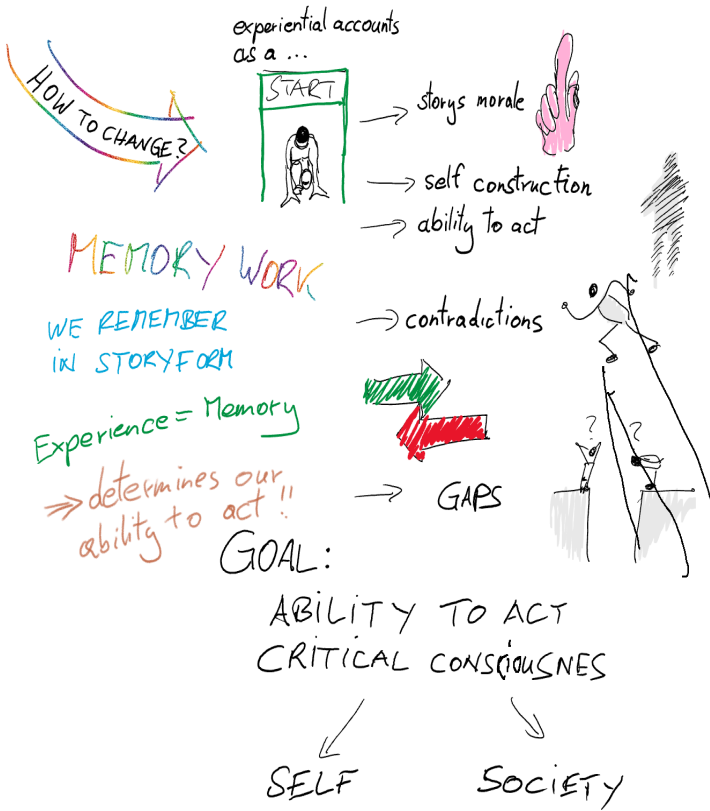 HOW TO CHANGE?
experiential accounts
as a ...
START
→ storys morale
→ self construction
→ ability to act
MEMORY WORK
WE REMEMBER
IN STORYFORM
→ contradictions
Experience = Memory
⇒ determines our
ability to act !!
→ GAPS
? ?
GOAL:
ABILITY TO ACT
CRITICAL CONSCIOUSNES
SELF
SOCIETY